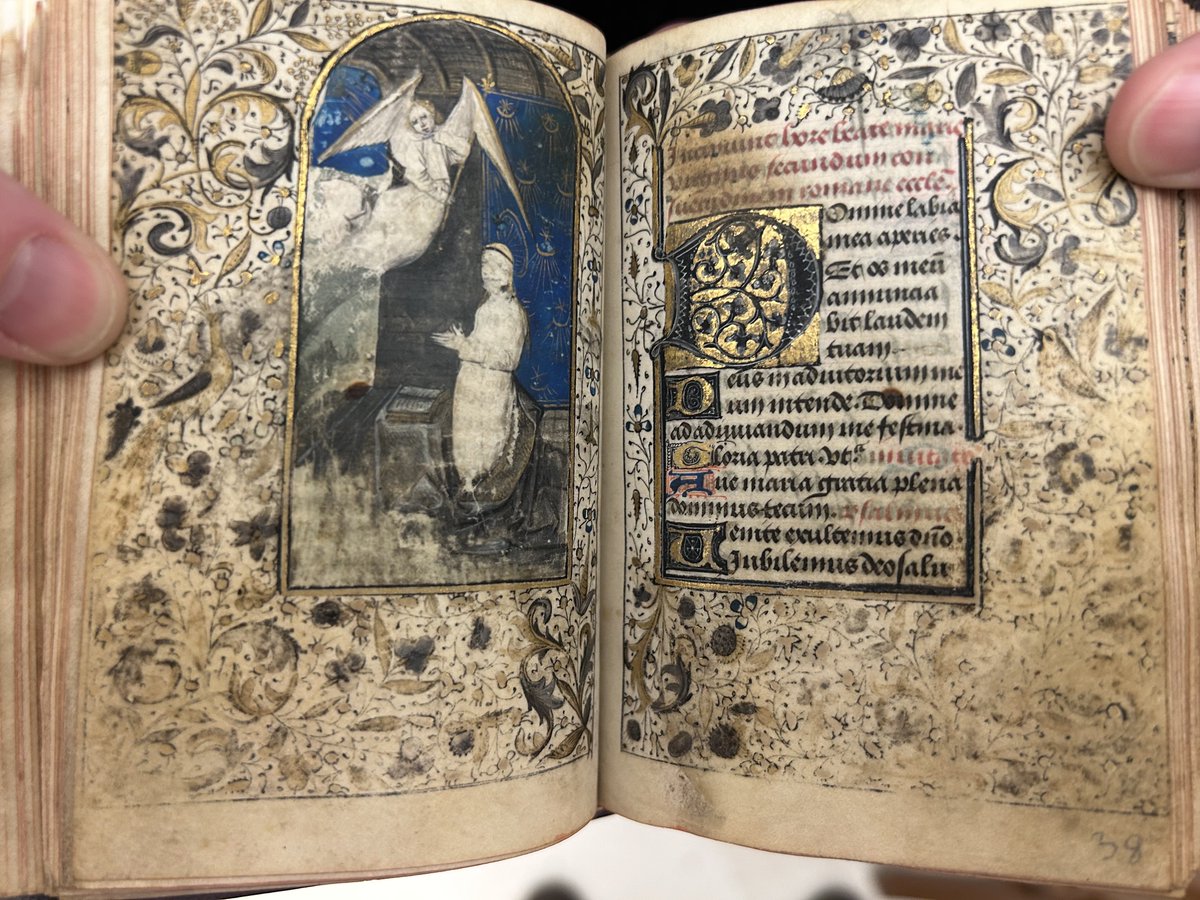 Incipiunt hore beate marie
virginis secundum con
suetudinem romane eccl̄e.
Domine labia
mea aperies.
Et os meū
annuncia
bit laudem
tuam.
Deus in adiutorium me
um intende Domine
ad adiuuandum me festina.
Gloria patri. Vt sͣ
Aue maria gratia plena
dominus tecum. psalmus
Uenite exultemus dño
Iubilemus deo salu
38